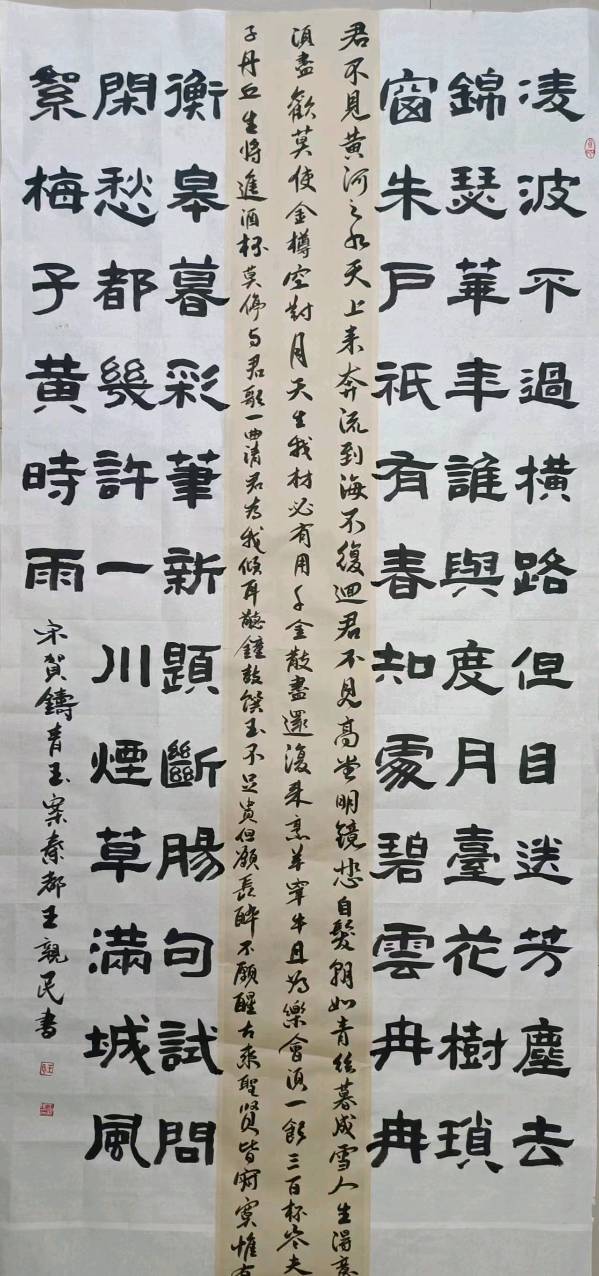 凌波不過橫路但目送芳塵去
錦瑟華年誰與度月臺花樹瑣
窗朱戶祇有春知處碧雲冉冉
君不見黃河之水天上来奔流到海不復迴君不見高堂明鏡悲白髮朝如青絲暮成雪人生得意
須盡歡莫使金樽空對月天生我材必有用千金散盡還復来烹羊宰牛且為樂會須一飲三百杯岑夫
子丹丘生将進酒杯莫停与君歌一曲請君為我倾耳聽鐘鼓饌玉不足貴但願長醉不願醒古来聖賢皆寂寞惟有
衡皋暮彩筆新題斷腸句試問
閑愁都幾許一川煙草滿城風
絮梅子黃時雨
宋賀鑄青玉案秦都王親民書